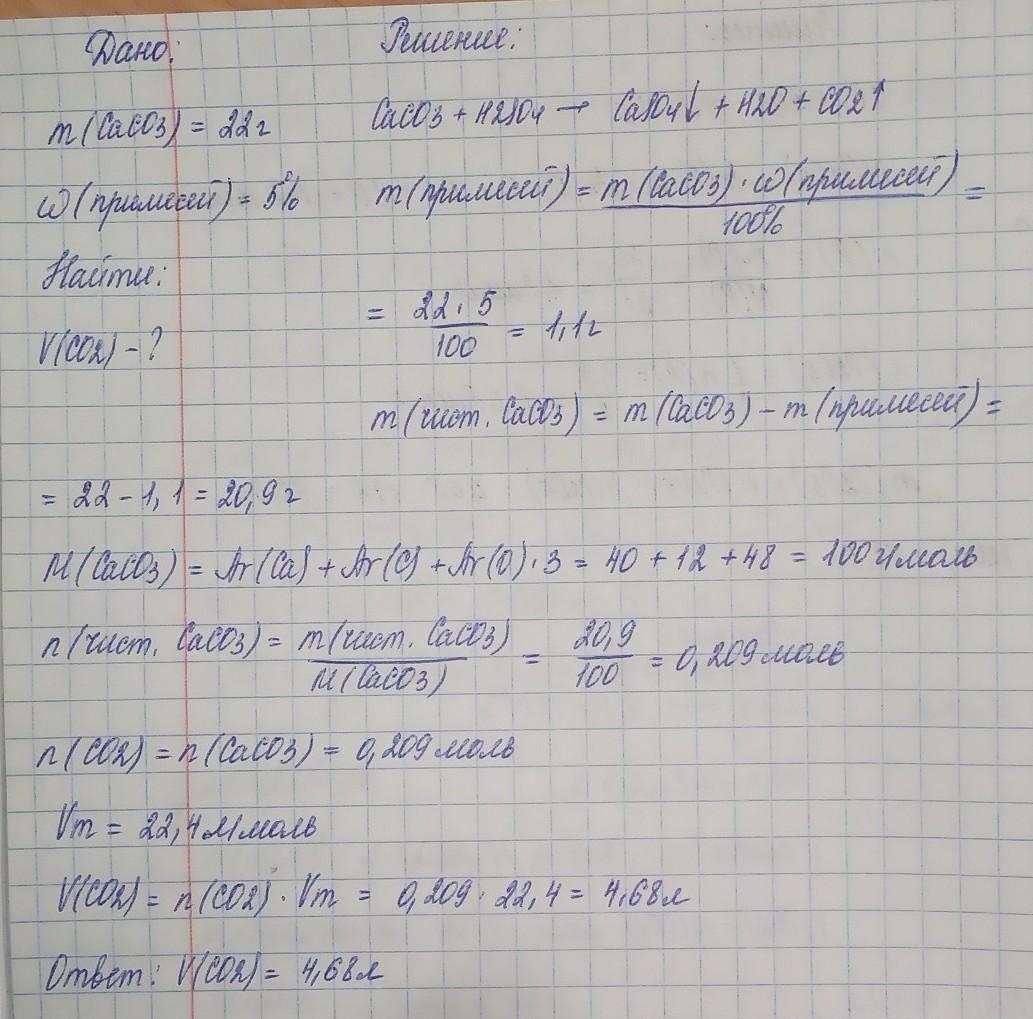 Дано:
Решение:
m(CaCO3) = 22г
CaCO3 + H2SO4 → CaSO4↓ + H2O + CO2↑
ω(примесей) = 5%
m(примесей) = m(CaCO3) · ω(примесей) / 100% =
Найти:
V(CO2) - ?
= 22 · 5 / 100 = 1,1г
m(чист. CaCO3) = m(CaCO3) - m(примесей) =
= 22 - 1,1 = 20,9г
M(CaCO3) = Ar(Ca) + Ar(C) + Ar(O) · 3 = 40 + 12 + 48 = 100г/моль
n(чист. CaCO3) = m(чист. CaCO3) / M(CaCO3) = 20,9 / 100 = 0,209моль
n(CO2) = n(CaCO3) = 0,209моль
Vm = 22,4л/моль
V(CO2) = n(CO2) · Vm = 0,209 · 22,4 = 4,68л
Ответ: V(CO2) = 4,68л